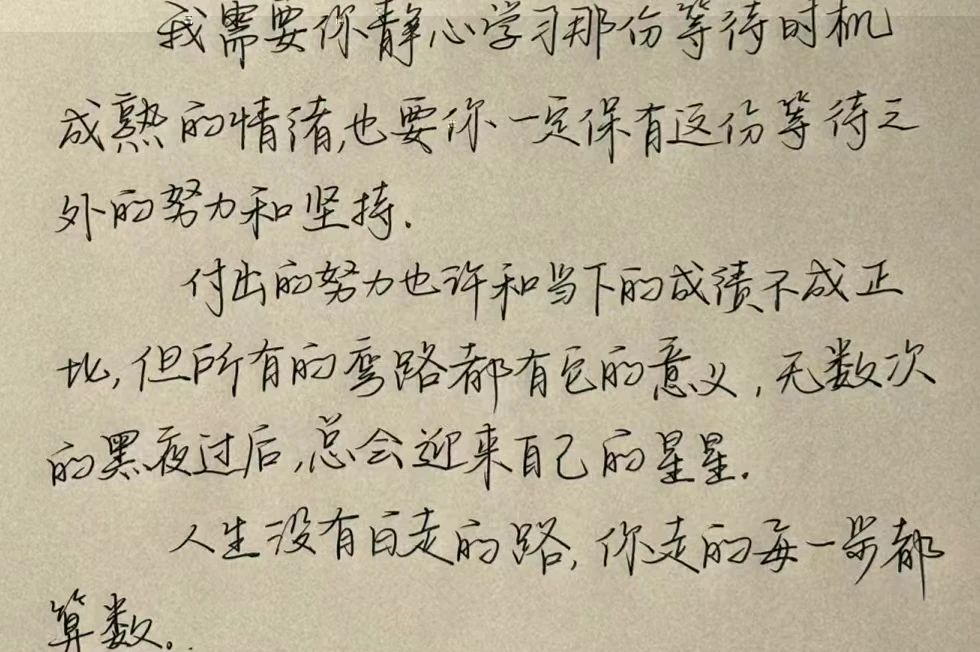 我需要你静心学习那份等待时机
成熟的情绪,也要你一定保有这份等待之
外的努力和坚持.
付出的努力也许和当下的成绩不成正
比,但所有的弯路都有它的意义,无数次
的黑夜过后,总会迎来自己的星星.
人生没有白走的路,你走的每一步都
算数。